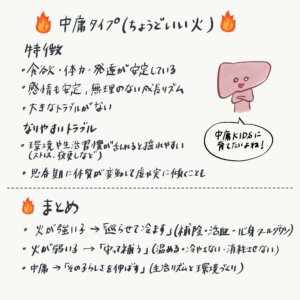 中庸タイプ(ちょうどいい火)
特徴
・食欲・体力・発達が安定している
・感情も安定、無理のない成長リズム
・大きなトラブルがない
なりやすいトラブル
・環境や生活習慣が乱れると揺れやすい
(ストレス、夜更しなど)
・思春期に体質が変動して虚や実に傾くことも
中庸KIDSに
育てたいよね!
まとめ
・火が強い子→「巡らせて冷ます」(補陰・活血・心身クールダウン)
・火が弱い子→「守って補う」(温める・冷やさない・消耗させない)
・中庸→「その子らしさを伸ばす」(生活リズムと環境づくり)